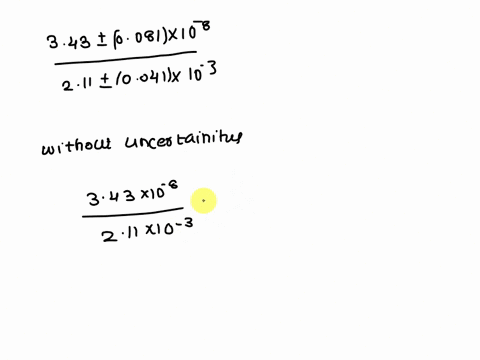 3.43 ± (0.081) × 10⁻⁸
2.11 ± (0.041) × 10⁻³
without uncertainitys
3.43 × 10⁻⁸
2.11 × 10⁻³